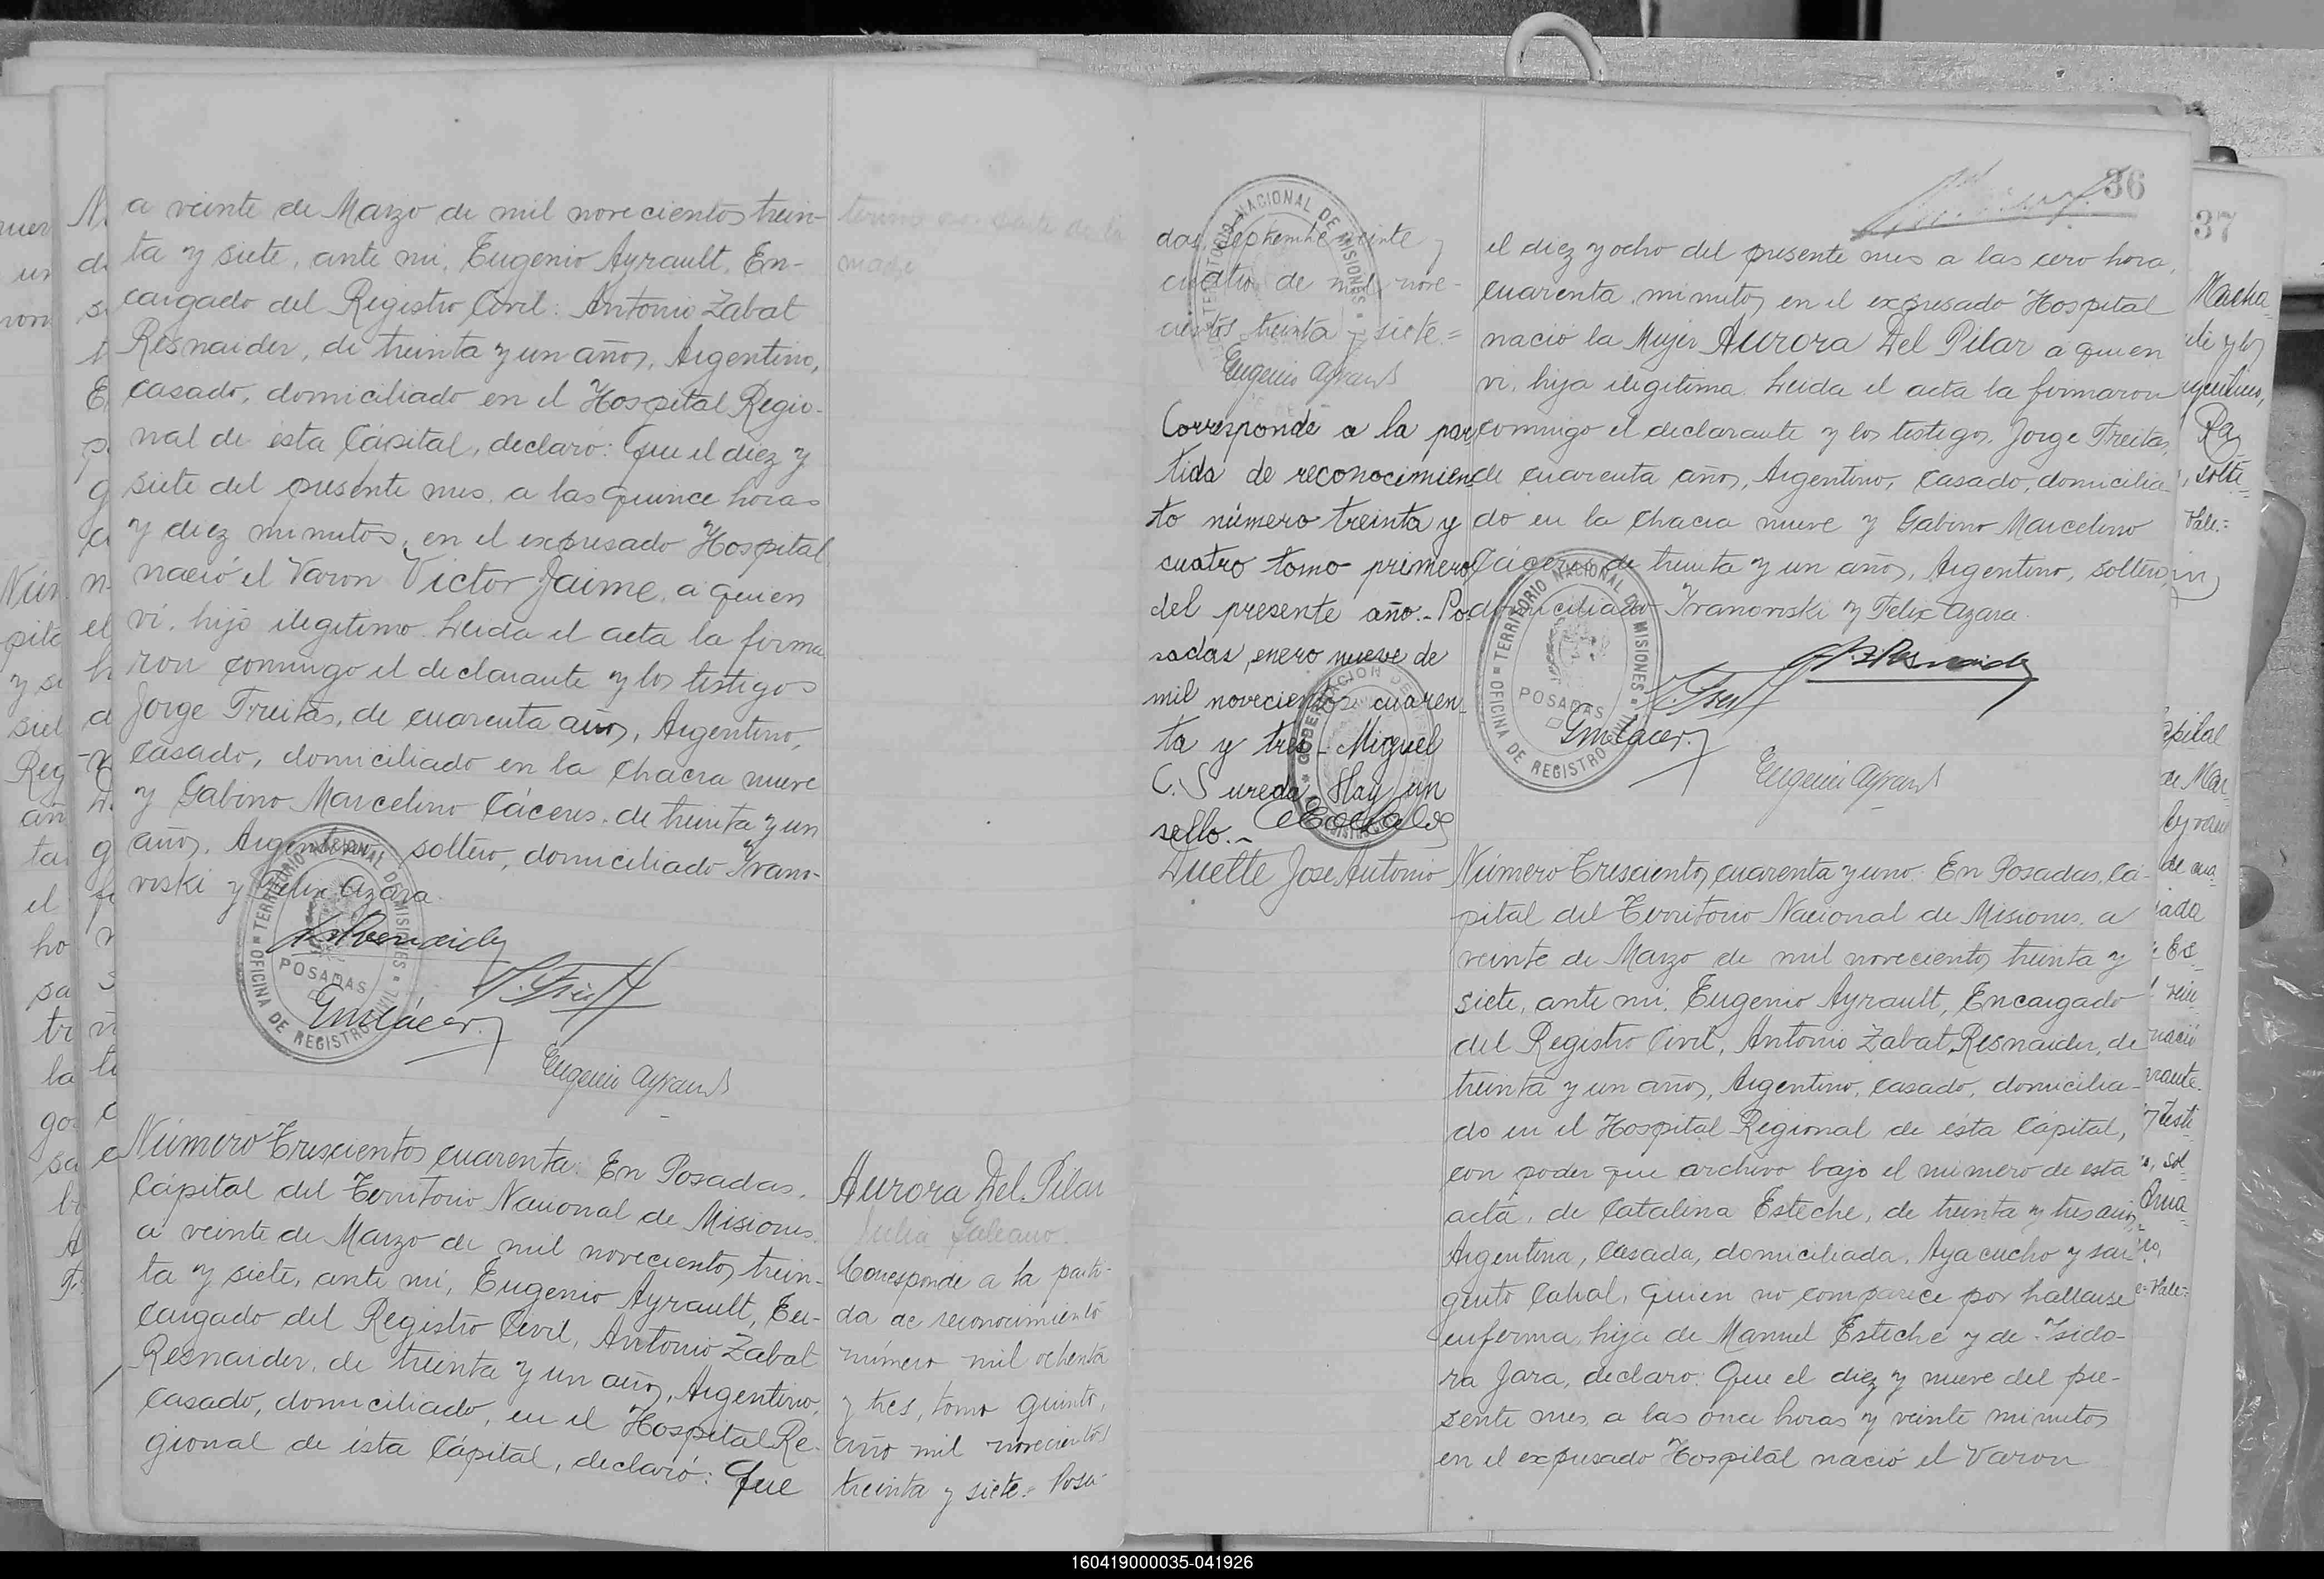 a veinte de Marzo de mil novecientos trein-
ta y siete, ante mi, Eugenio Ayrault, En-
cargado del Registro Civil: Antonio Zabat
Resnaider, de treinta y un años, Argentino,
casado, domiciliado en el Hospital Regio-
nal de ésta Cápital, declaró: Que el diez y
siete del presente mes, a las quince horas
y diez minutos, en el expresado Hospital
nació el Varon Victor Jaime, a quien
ví, hijo ilegitimo. Leida el acta la firma
ron conmigo el declarante y los testigos
Jorge Freitas, de cuarenta años, Argentino,
casado, domiciliado en la Chacra nueve
y Gabino Marcelino Cáceres, de treinta y un
años, Argentino, soltero, domiciliado Ivano-
voski y Felix Azara.
TERRITORIO NACIONAL DE MISIONES
POSADAS
OFICINA DE REGISTRO CIVIL
Eugenio Ayrault
Número Trescientos cuarenta: En Posadas,
Cápital del Territorio Nacional de Misiones,
a veinte de Marzo de mil novecientos trein-
ta y siete, ante mi, Eugenio Ayrault, En-
cargado del Registro Civil, Antonio Zabat
Resnaider, de treinta y un años, Argentino,
casado, domiciliado, en el Hospital Re-
gional de ésta Cápital, declaró: Que
Aurora Del Pilar
Julia Galeano.
Corresponde a la parti-
da de reconocimiento
número mil ochenta
y tres, tomo quinto,
año mil novecientos
treinta y siete.= Posa-
das, septiembre veinte y
cuatro de mil nove-
cientos treinta y siete=
Eugenio Ayrault
Corresponde a la par
tida de reconocimien
to número treinta y
cuatro tomo primero
del presente año.- Po
sadas, enero nueve de
mil novecientos cuaren-
ta y tres - Miguel
C. Sureda. Hay un
sello.-
36
el diez y ocho del presente mes a las cero hora,
cuarenta minutos en el expresado Hospital
nació la Mujer Aurora Del Pilar a quien
ví, hija ilegitima. Leida el acta la firmaron
conmigo el declarante y los testigos, Jorge Freitas,
de cuarenta años, Argentino, casado, domicilia-
do en la Chacra nueve y Gabino Marcelino
Cáceres de treinta y un años, Argentino, soltero,
domiciliado Ivanovski y Felix Azara.
TERRITORIO NACIONAL DE MISIONES
POSADAS
OFICINA DE REGISTRO CIVIL
Eugenio Ayrault
Duette Jose Antonio
Número Trescientos cuarenta y uno: En Posadas, Cá-
pital del Territorio Nacional de Misiones, a
veinte de Marzo de mil novecientos treinta y
siete, ante mi, Eugenio Ayrault, Encargado
del Registro Civil, Antonio Zabat Resnaider, de
treinta y un años, Argentino, casado, domicilia-
do en el Hospital Regional de ésta Cápital,
con poder que archivo bajo el número de esta
acta, de Catalina Esteche, de treinta y tres años,
Argentina, Casada, domiciliada, Ayacucho y sar-
gento Cabral, quien no comparece por hallarse
enferma, hija de Manuel Esteche y de Isido-
ra Jara, declaro: Que el diez y nueve del pre-
sente mes, a las once horas y veinte minutos
en el expresado Hospital nació el Varon
37
160419000035-041926